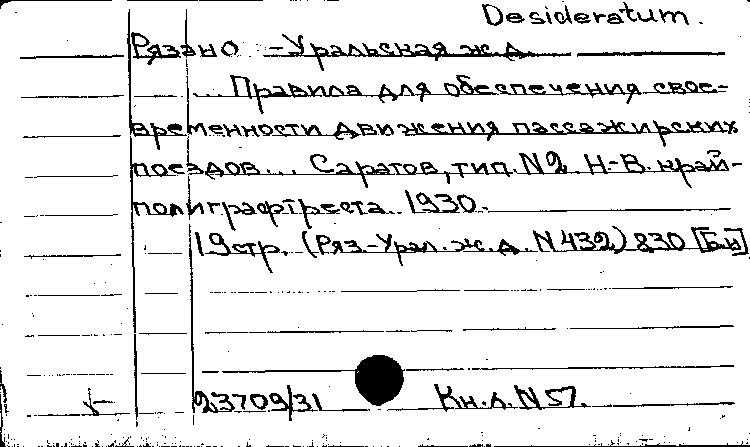 Desideratum.
Рязано-Уральская ж.д.
... Правила для обеспечения свое-
временности движения пассажирских
поездов... Саратов, тип. N2 Н-В. край-
полиграфтреста. 1930.
19 стр. (Ряз.-Урал. ж.д. N 432) 830 [Б.ц]
23709/31 Кн.л. N 57.